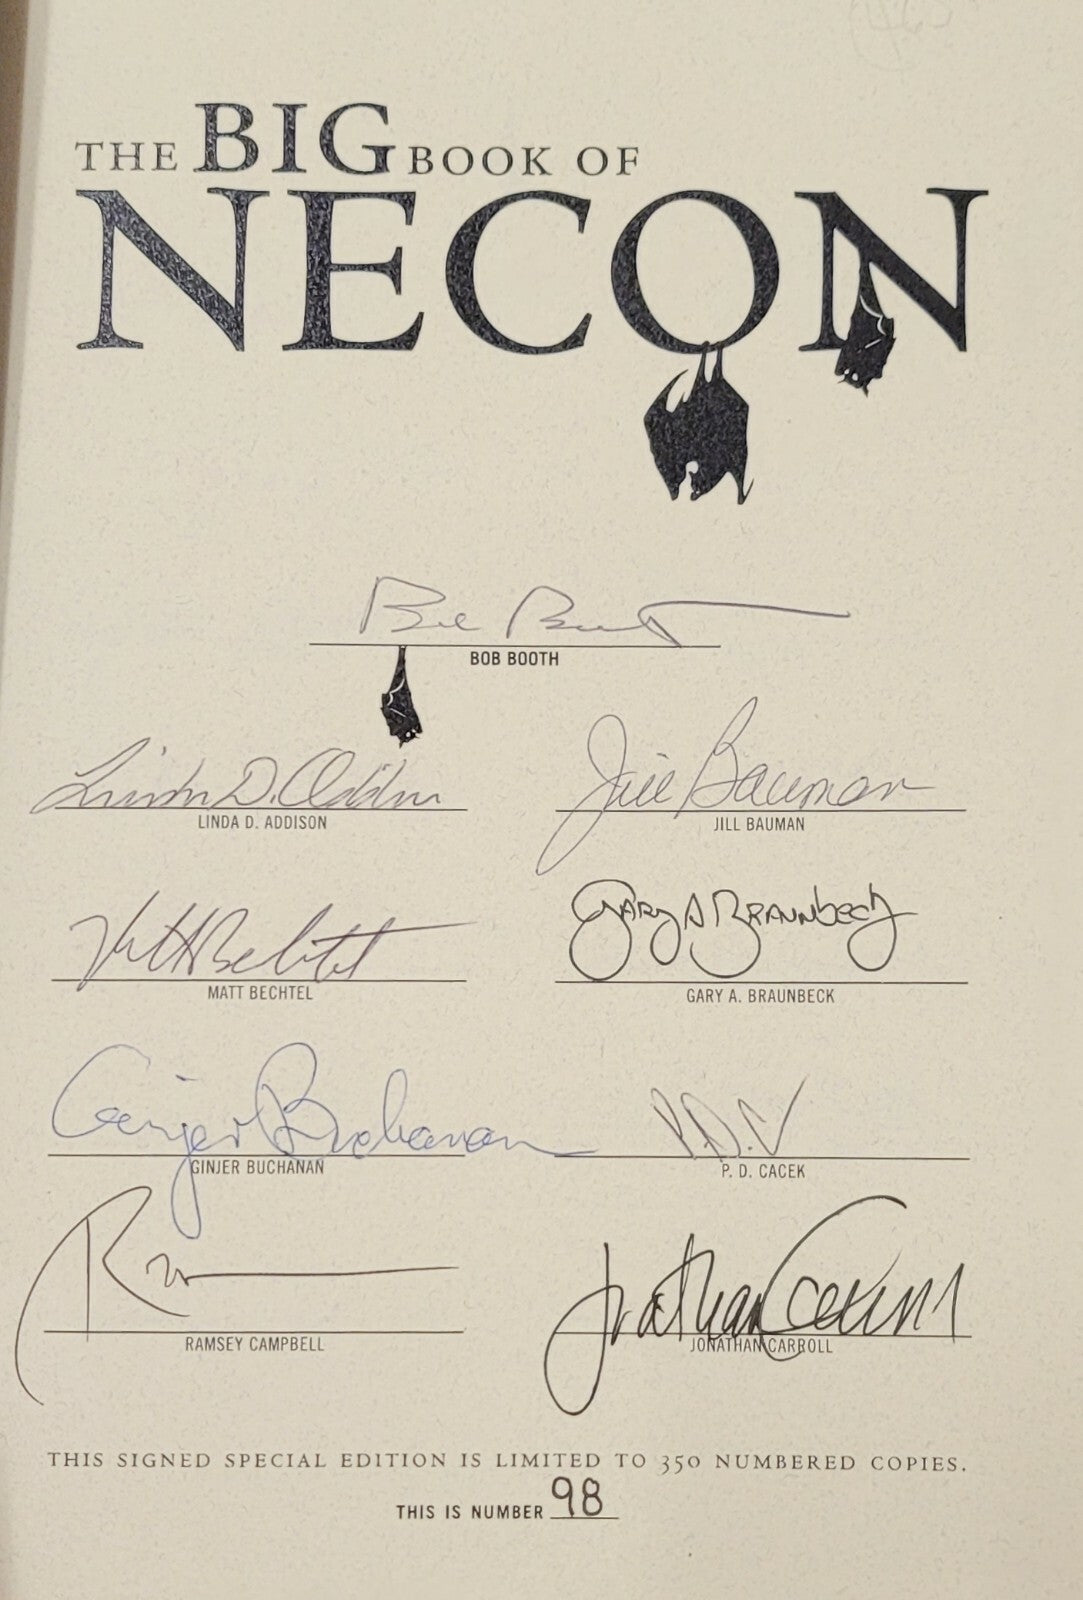 THE BIG BOOK OF
NECON
Bob Booth
BOB BOOTH
Linda D. Addison
LINDA D. ADDISON
Jill Bauman
JILL BAUMAN
Matt Bechtel
MATT BECHTEL
Gary A Braunbeck
GARY A. BRAUNBECK
Ginjer Buchanan
GINJER BUCHANAN
P.D.C
P. D. CACEK
RAMSEY CAMPBELL
Jonathan Carroll
JONATHAN CARROLL
THIS SIGNED SPECIAL EDITION IS LIMITED TO 350 NUMBERED COPIES.
THIS IS NUMBER 98